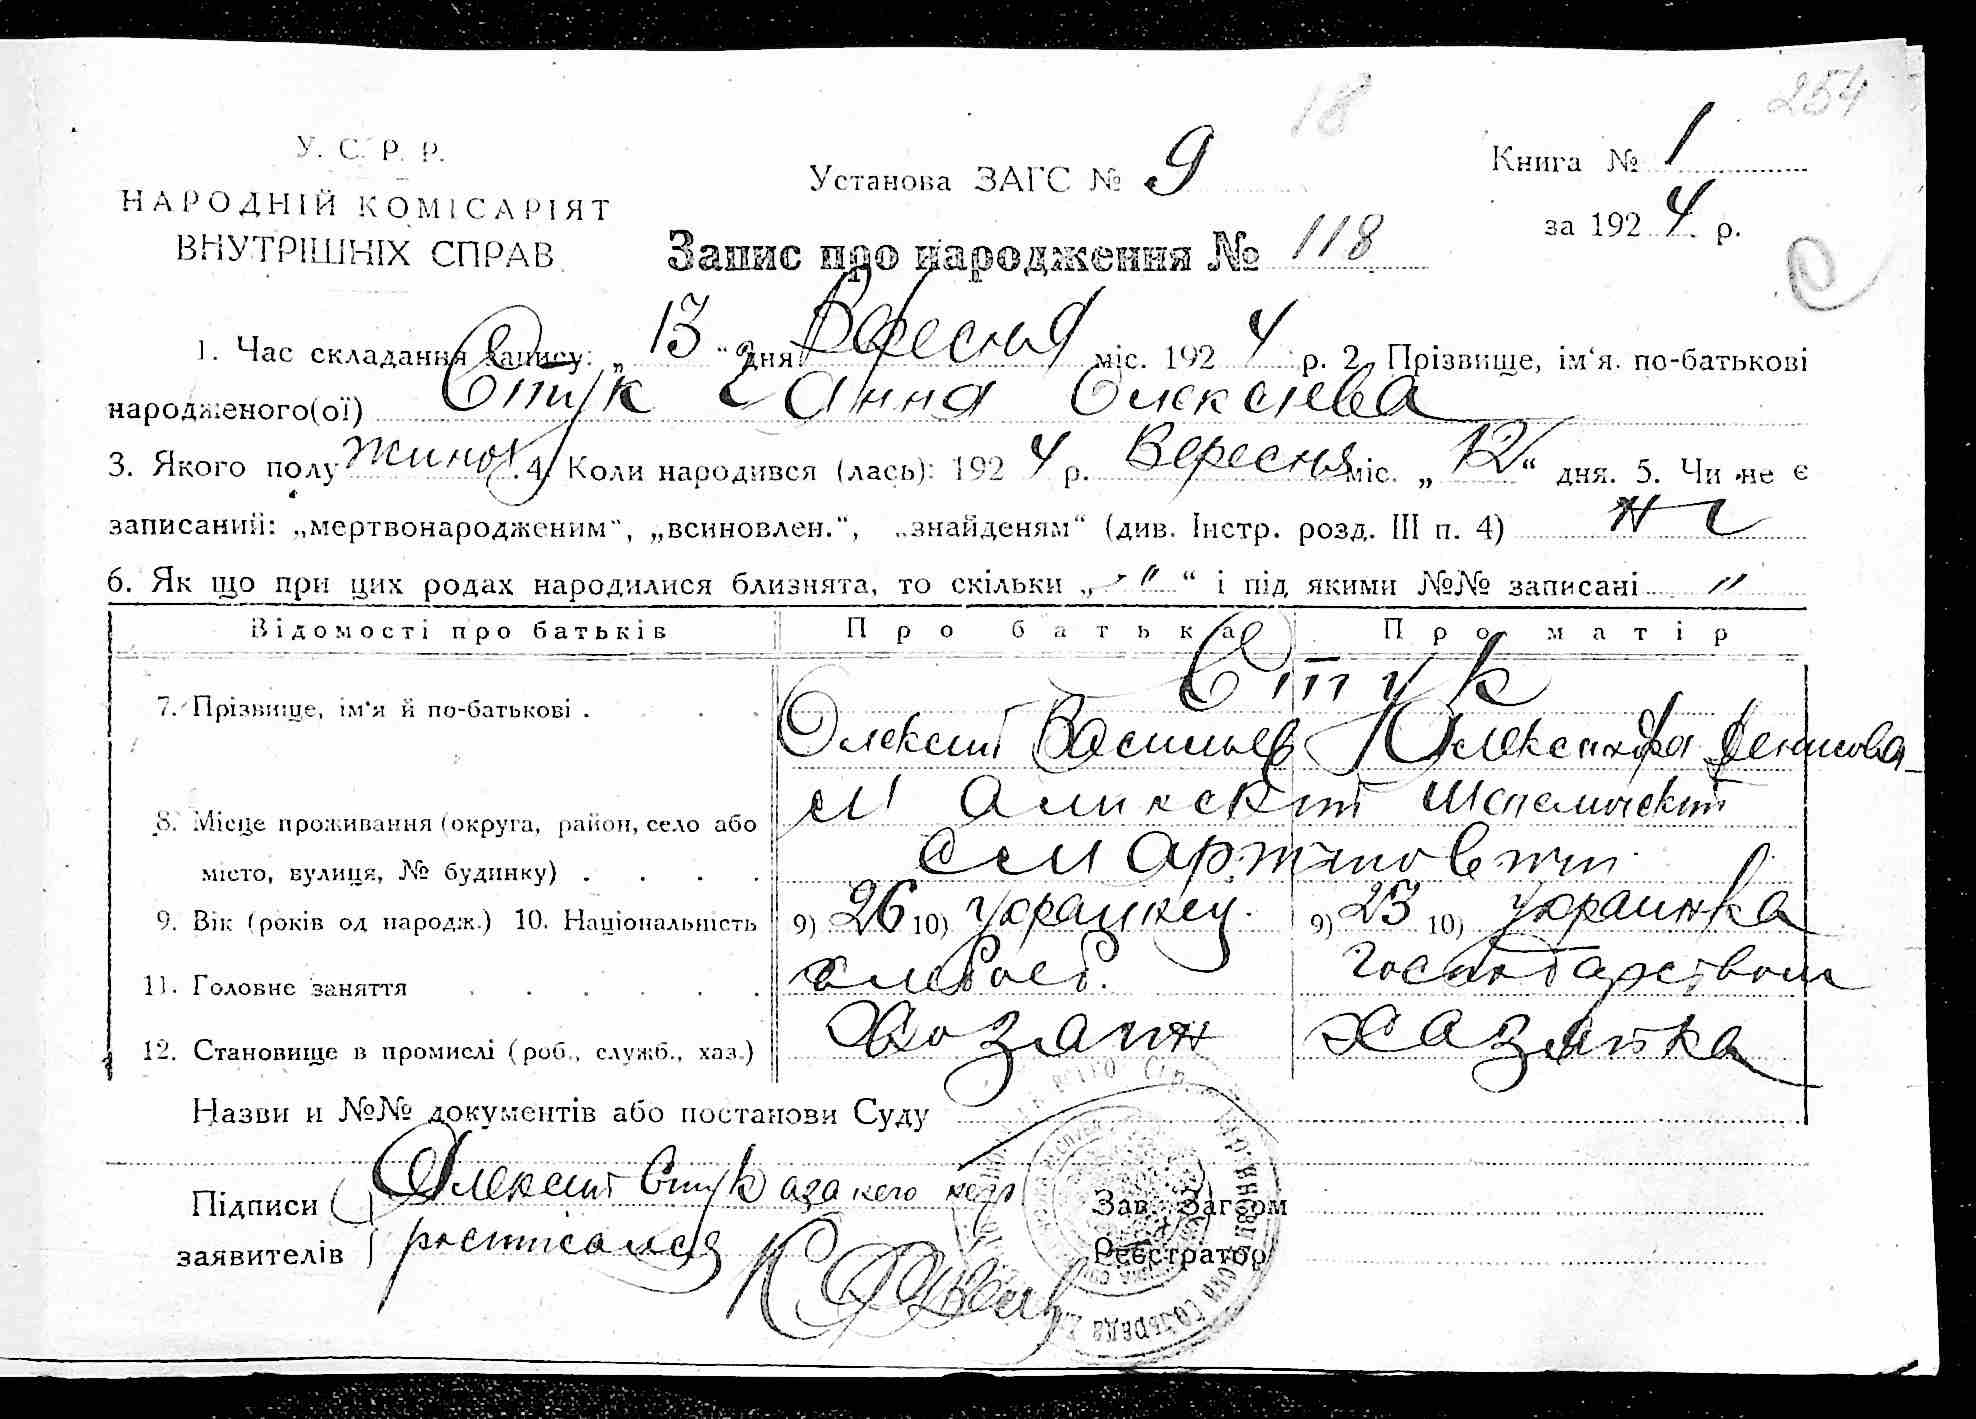 254
18
У. С. Р. Р.
НАРОДНІЙ КОМІСАРІЯТ
ВНУТРІШНІХ СПРАВ
Установа ЗАГС № 9
Книга № 1
за 1924 р.
Запис про народження № 118
1. Час складання запису: „13“ дня Вересня міс. 1924 р. 2. Прізвище, ім‘я. по-батькові
народженого(ої) Стук Ганна Олексієва
3. Якого полу жиноч. 4. Коли народився (лась): 1924 р. Вересня міс. „12“ дня. 5. Чи не є
записаний: „мертвонародженим“, „всиновлен.“, „знайденям“ (див. Інстр. розд. III п. 4) ні
6. Як що при цих родах народилися близнята, то скільки „ " “ і під якими №№ записані "
Відомості про батьків Про батька Про матір
7. Прізвище, ім‘я й по-батькові . Стук
Олексій Васильев Олександра Денисова
8. Місце проживання (округа, район, село або
місто, вулиця, № будинку)
9. Вік (років од народж.) 10. Національність 9) 26 10) украинец. 9) 23 10) украинка
11. Головне заняття хлебоеб. господарством
12. Становище в промислі (роб., служб., хаз.) Хозаин хазяйка
Назви и №№ документів або постанови Суду
Підписи Олексий Стук а за него
заявителів росписался
Зав. Загсом
Реєстратор